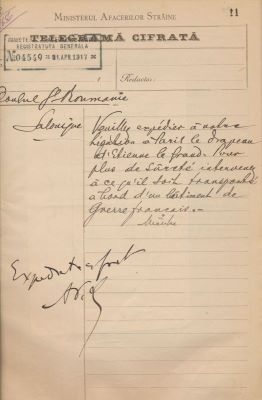 11
MINISTERUL AFACERILOR STRĂINE
TELEGRAMĂ CIFRATĂ
REGISTRATURA GENERALĂ
No 04549 * 21.APR.1917
Redactor:
Consul Gl Roumanie
Salonique
Veuillez expédier à notre
Légation à Paris le drapeau
St Etienne le Grand. Pour
plus de sûreté intervenez
à ce qu'il soit transporté
à bord d'un bâtiment de
Guerre français.-